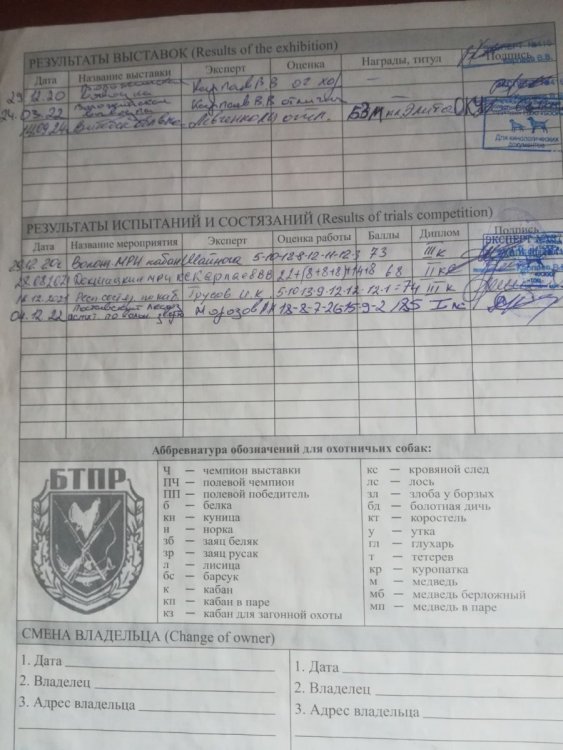 РЕЗУЛЬТАТЫ ВЫСТАВОК (Results of the exhibition)
Дата Название выставки Эксперт Оценка Награды, титул Подпись
12.20 Карпаев В В оч хор —
24.03.22 Карпаев В.В отлично —
09.24 отл. БЗМ кл. Элита
Для кинологических документов
РЕЗУЛЬТАТЫ ИСПЫТАНИЙ И СОСТЯЗАНИЙ (Results of trials competition)
Дата Название мероприятия Эксперт Оценка работы Баллы Диплом Подпись
ЭКСПЕРТ
12.20 МРИ кабан 5-10-12-8-12-11-12-3 73 III к
28.08.2021 Карпаев ВВ 68 II
12.2021 по каб. Трусов И.К 5-10-13-9-12-12-12-1=74 III к
04.12.22 Морозов I
Аббревиатура обозначений для охотничьих собак:
БТПР
Ч — чемпион выставки
ПЧ — полевой чемпион
ПП — полевой победитель
б — белка
кн — куница
н — норка
зб — заяц беляк
зр — заяц русак
л — лисица
бс — барсук
к — кабан
кп — кабан в паре
кз — кабан для загонной охоты
кс — кровяной след
лс — лось
зл — злоба у борзых
бд — болотная дичь
кт — коростель
у — утка
гл — глухарь
т — тетерев
кр — куропатка
м — медведь
мб — медведь берложный
мп — медведь в паре
СМЕНА ВЛАДЕЛЬЦА (Change of owner)
1. Дата
2. Владелец
3. Адрес владельца
1. Дата
2. Владелец
3. Адрес владельца